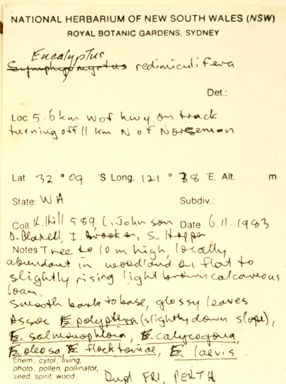 NATIONAL HERBARIUM OF NEW SOUTH WALES (NSW)
ROYAL BOTANIC GARDENS, SYDNEY
Eucalyptus
Symphyomyrtus rediminculifera
Det.:
Loc 5.6 km W of hwy on track
turning off 11 km N of Norseman
Lat. 32 ° 09 'S Long. 121 ° 38 'E. Alt. m
State: WA Subdiv.:
Coll. K. Hill 589 L. Johnson Date 6.11.1983
D. Blaxell, I. Brooker, S. Hopper
Notes Tree to 10 m high locally
abundant in woodland on flat to
slightly rising light brown calcareous
loam.
Smooth bark to base, glossy leaves
Assoc E. polyptera (slightly down slope),
E. salmonophloia, E. calycogona,
E. oleosa, E. flocktoniae, E. laevis.
Chem, cytol, living,
photo, pollen, pollinator,
seed, spirit, wood
Dupl FRI, PERTH